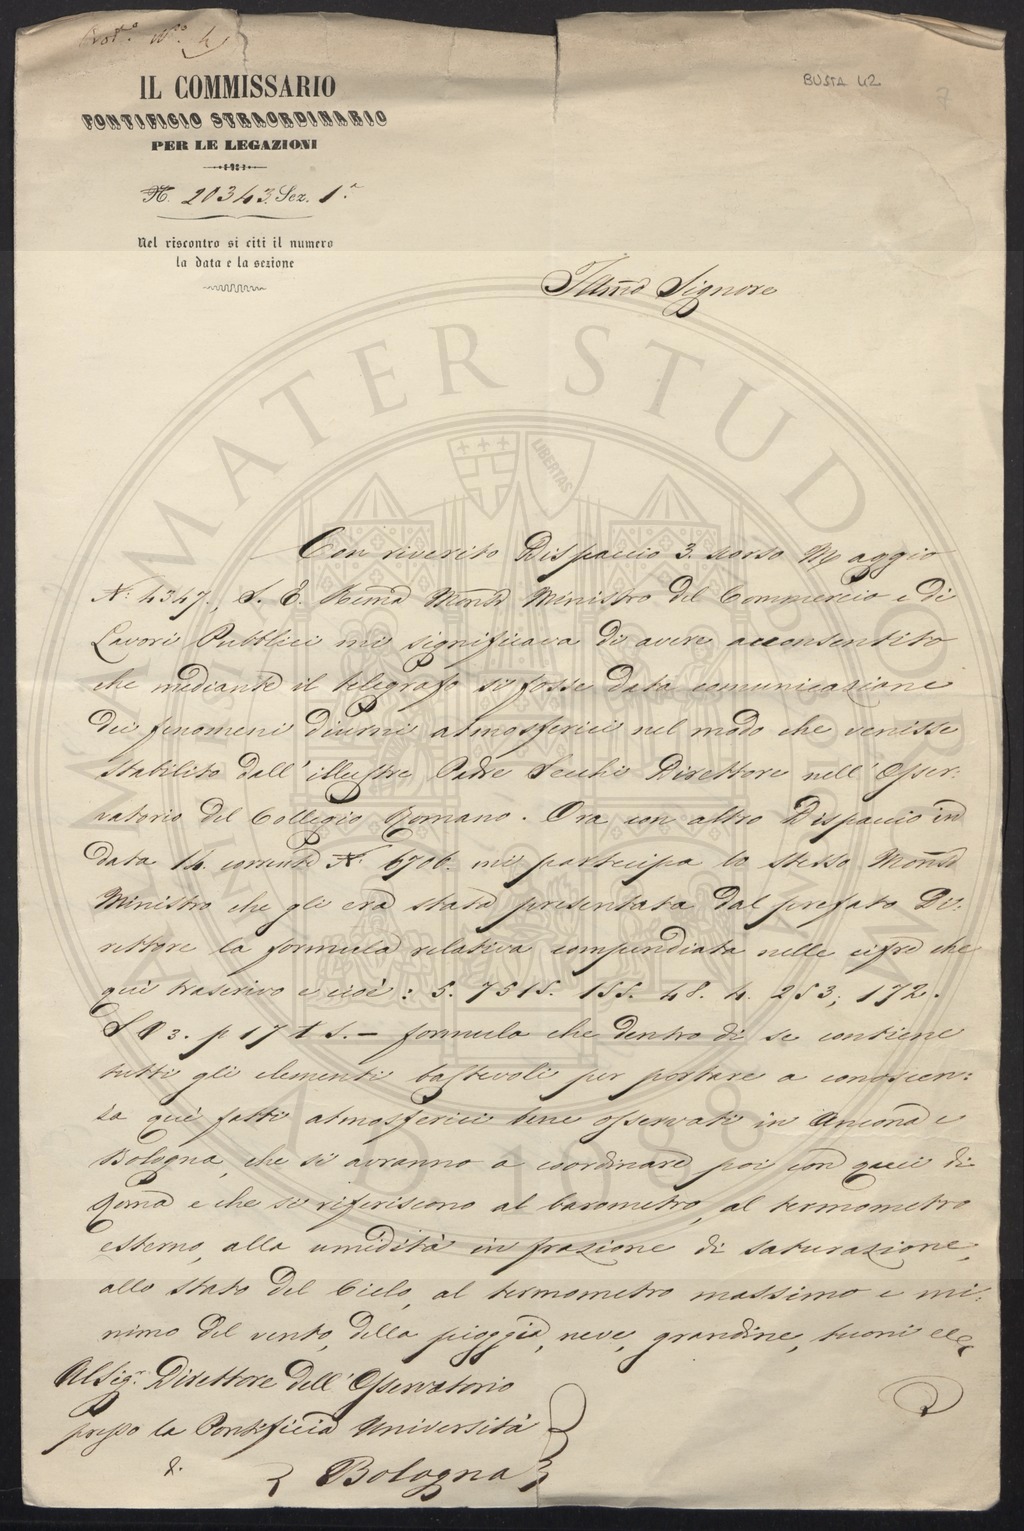 Prot.o N.o 4
BUSTA 42
7
IL COMMISSARIO
PONTIFICIO STRAORDINARIO
PER LE LEGAZIONI
N. 20343. Sez. 1.a
Nel riscontro si citi il numero
la data e la sezione
Illmo Signore
Con riverito Dispaccio 3. scorso Maggio
N. 4347., S. E. Rema Monsr Ministro del Commercio e di
Lavori Pubblici mi significava di avere acconsentito
che mediante il telegrafo si fosse data comunicazione
dei fenomeni diurni atmosferici nel modo che venisse
stabilito dall' illustre Padre Secchi Direttore nell' Osser=
vatorio del Collegio Romano. Ora con altro Dispaccio in
data 14. corrente N. 6706. mi partecipa lo stesso Monsr
Ministro che gli era stata presentata dal prefato Di=
rettore la formula relativa compendiata nelle cifre che
qui trascrivo e cioè: 5. 7515. 155. 48. 4. 253, 172.
S 03. p 17 1 S. — formula che dentro di se contiene
tutti gli elementi bastevoli per portare a conoscen=
za quei fatti atmosferici bene osservati in Ancona e
Bologna, che si avranno a coordinare poi con quei di
Roma e che si riferiscono al barometro, al termometro
esterno, alla umidità in frazione di saturazione,
allo stato del Cielo, al termometro massimo e mi=
nimo del vento, della pioggia, neve, grandine, tuoni
Al Sig.r Direttore dell' Osservatorio
presso la Pontificia Università
di
Bologna
ALMA MATER STUDIORUM
LIBERTAS
A.D. 1088